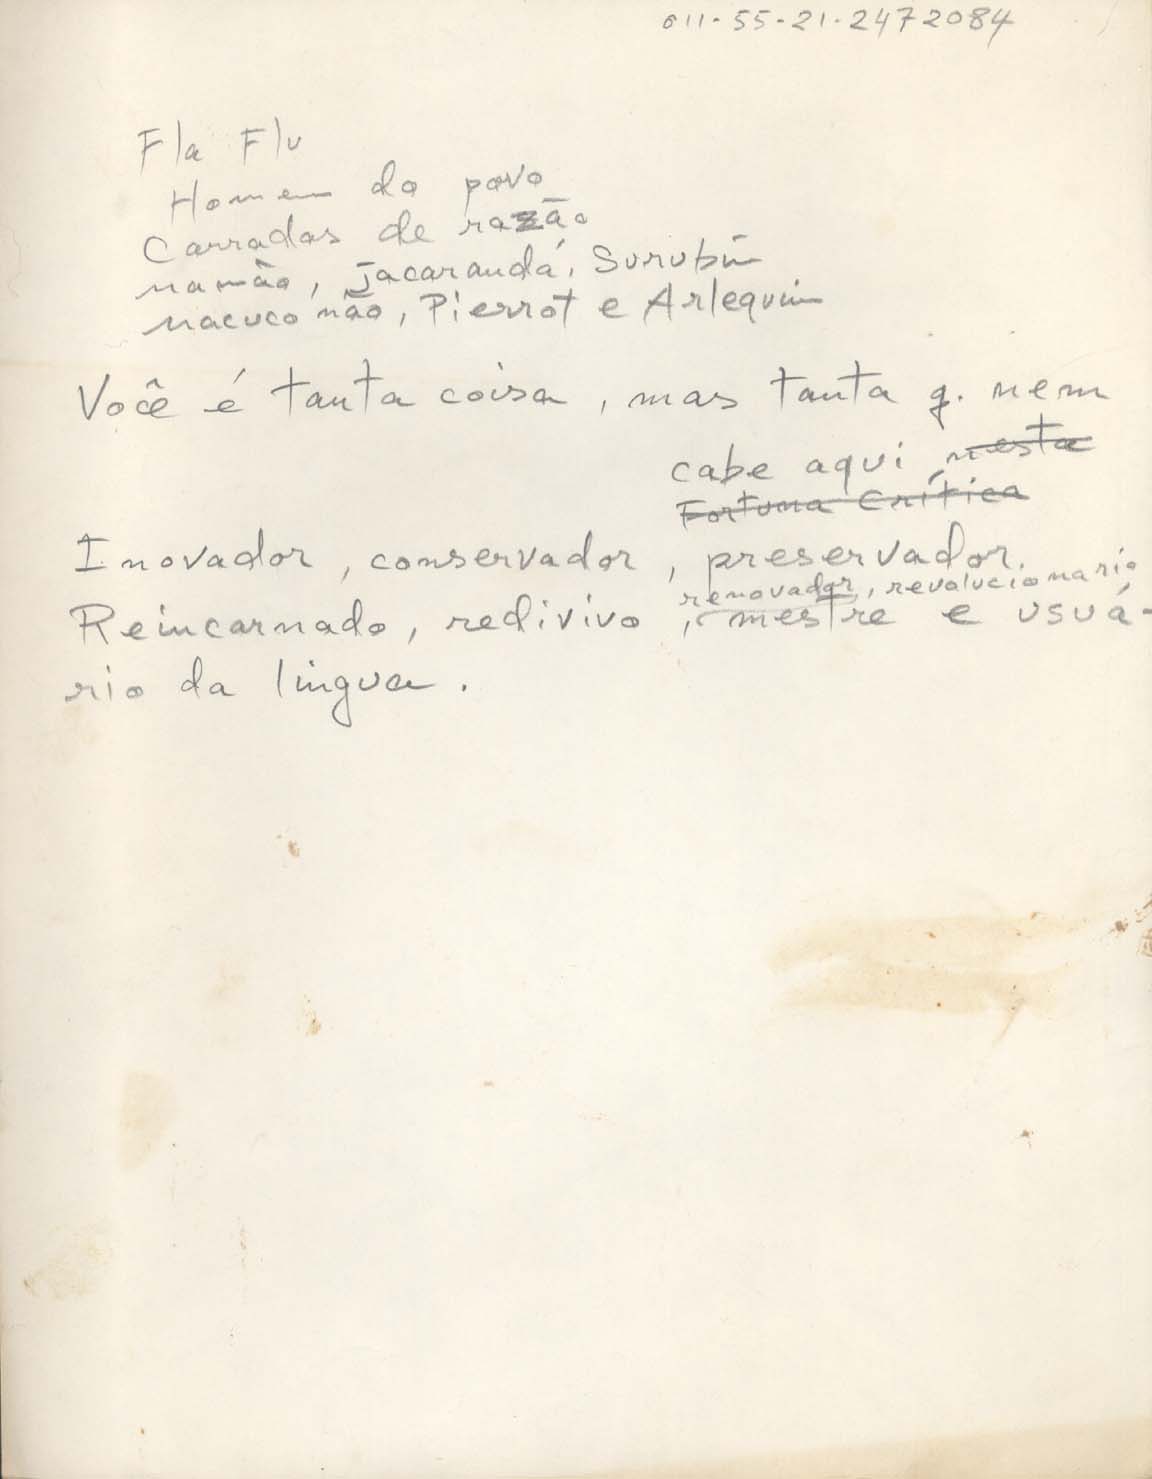 011-55-21-2472084
Fla Flu
Homem do povo
Carradas de razão
mamão, jacarandá, Surubim
macuco não, Pierrot e Arlequim
Você é tanta coisa, mas tanta q. nem
cabe aqui nesta
Fortuna Crítica
Inovador, conservador, preservador.
renovador, revolucionario
Reincarnado, redivivo, mestre e usuá-
rio da língua.